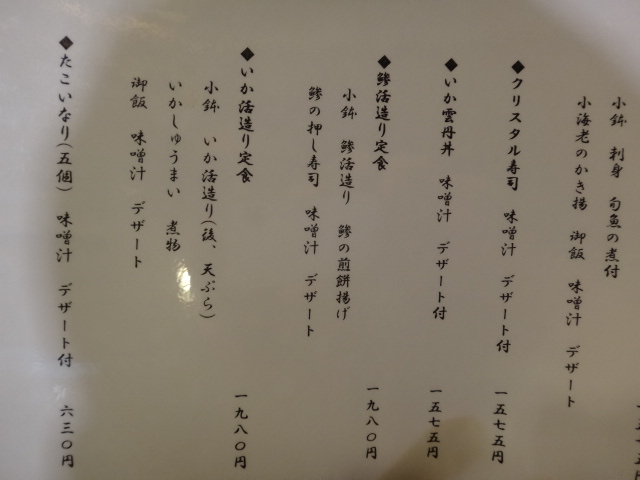 小鉢 刺身 旬魚の煮付
小海老のかき揚 御飯 味噌汁 デザート
◆クリスタル寿司 味噌汁 デザート付 一五七五円
◆いか雲丹丼 味噌汁 デザート付 一五七五円
◆鯵活造り定食 一九八〇円
小鉢 鯵活造り 鯵の煎餅揚げ
鯵の押し寿司 味噌汁 デザート
◆いか活造り定食 一九八〇円
小鉢 いか活造り(後、天ぷら)
いかしゅうまい 煮物
御飯 味噌汁 デザート
◆たこいなり(五個) 味噌汁 デザート付 六三〇円